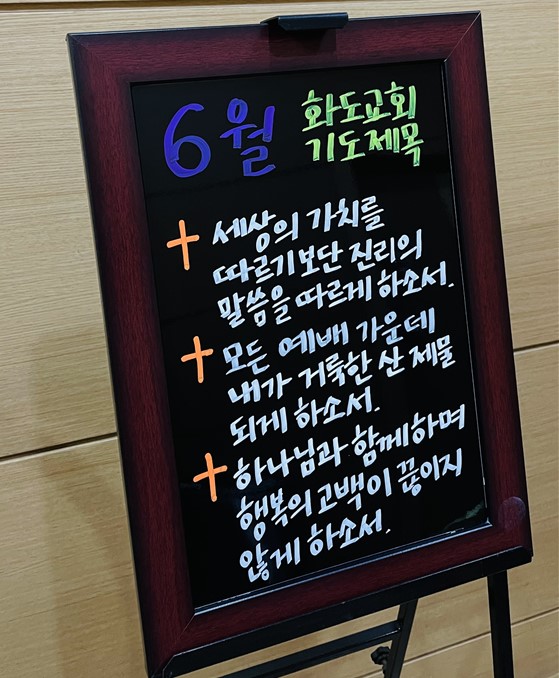 6월
화도교회
기도제목
+ 세상의 가치를
따르기보단 진리의
말씀을 따르게 하소서.
+ 모든 예배 가운데
내가 거룩한 산 제물
되게 하소서.
+ 하나님과 함께하며
행복의 고백이 끊이지
않게 하소서.